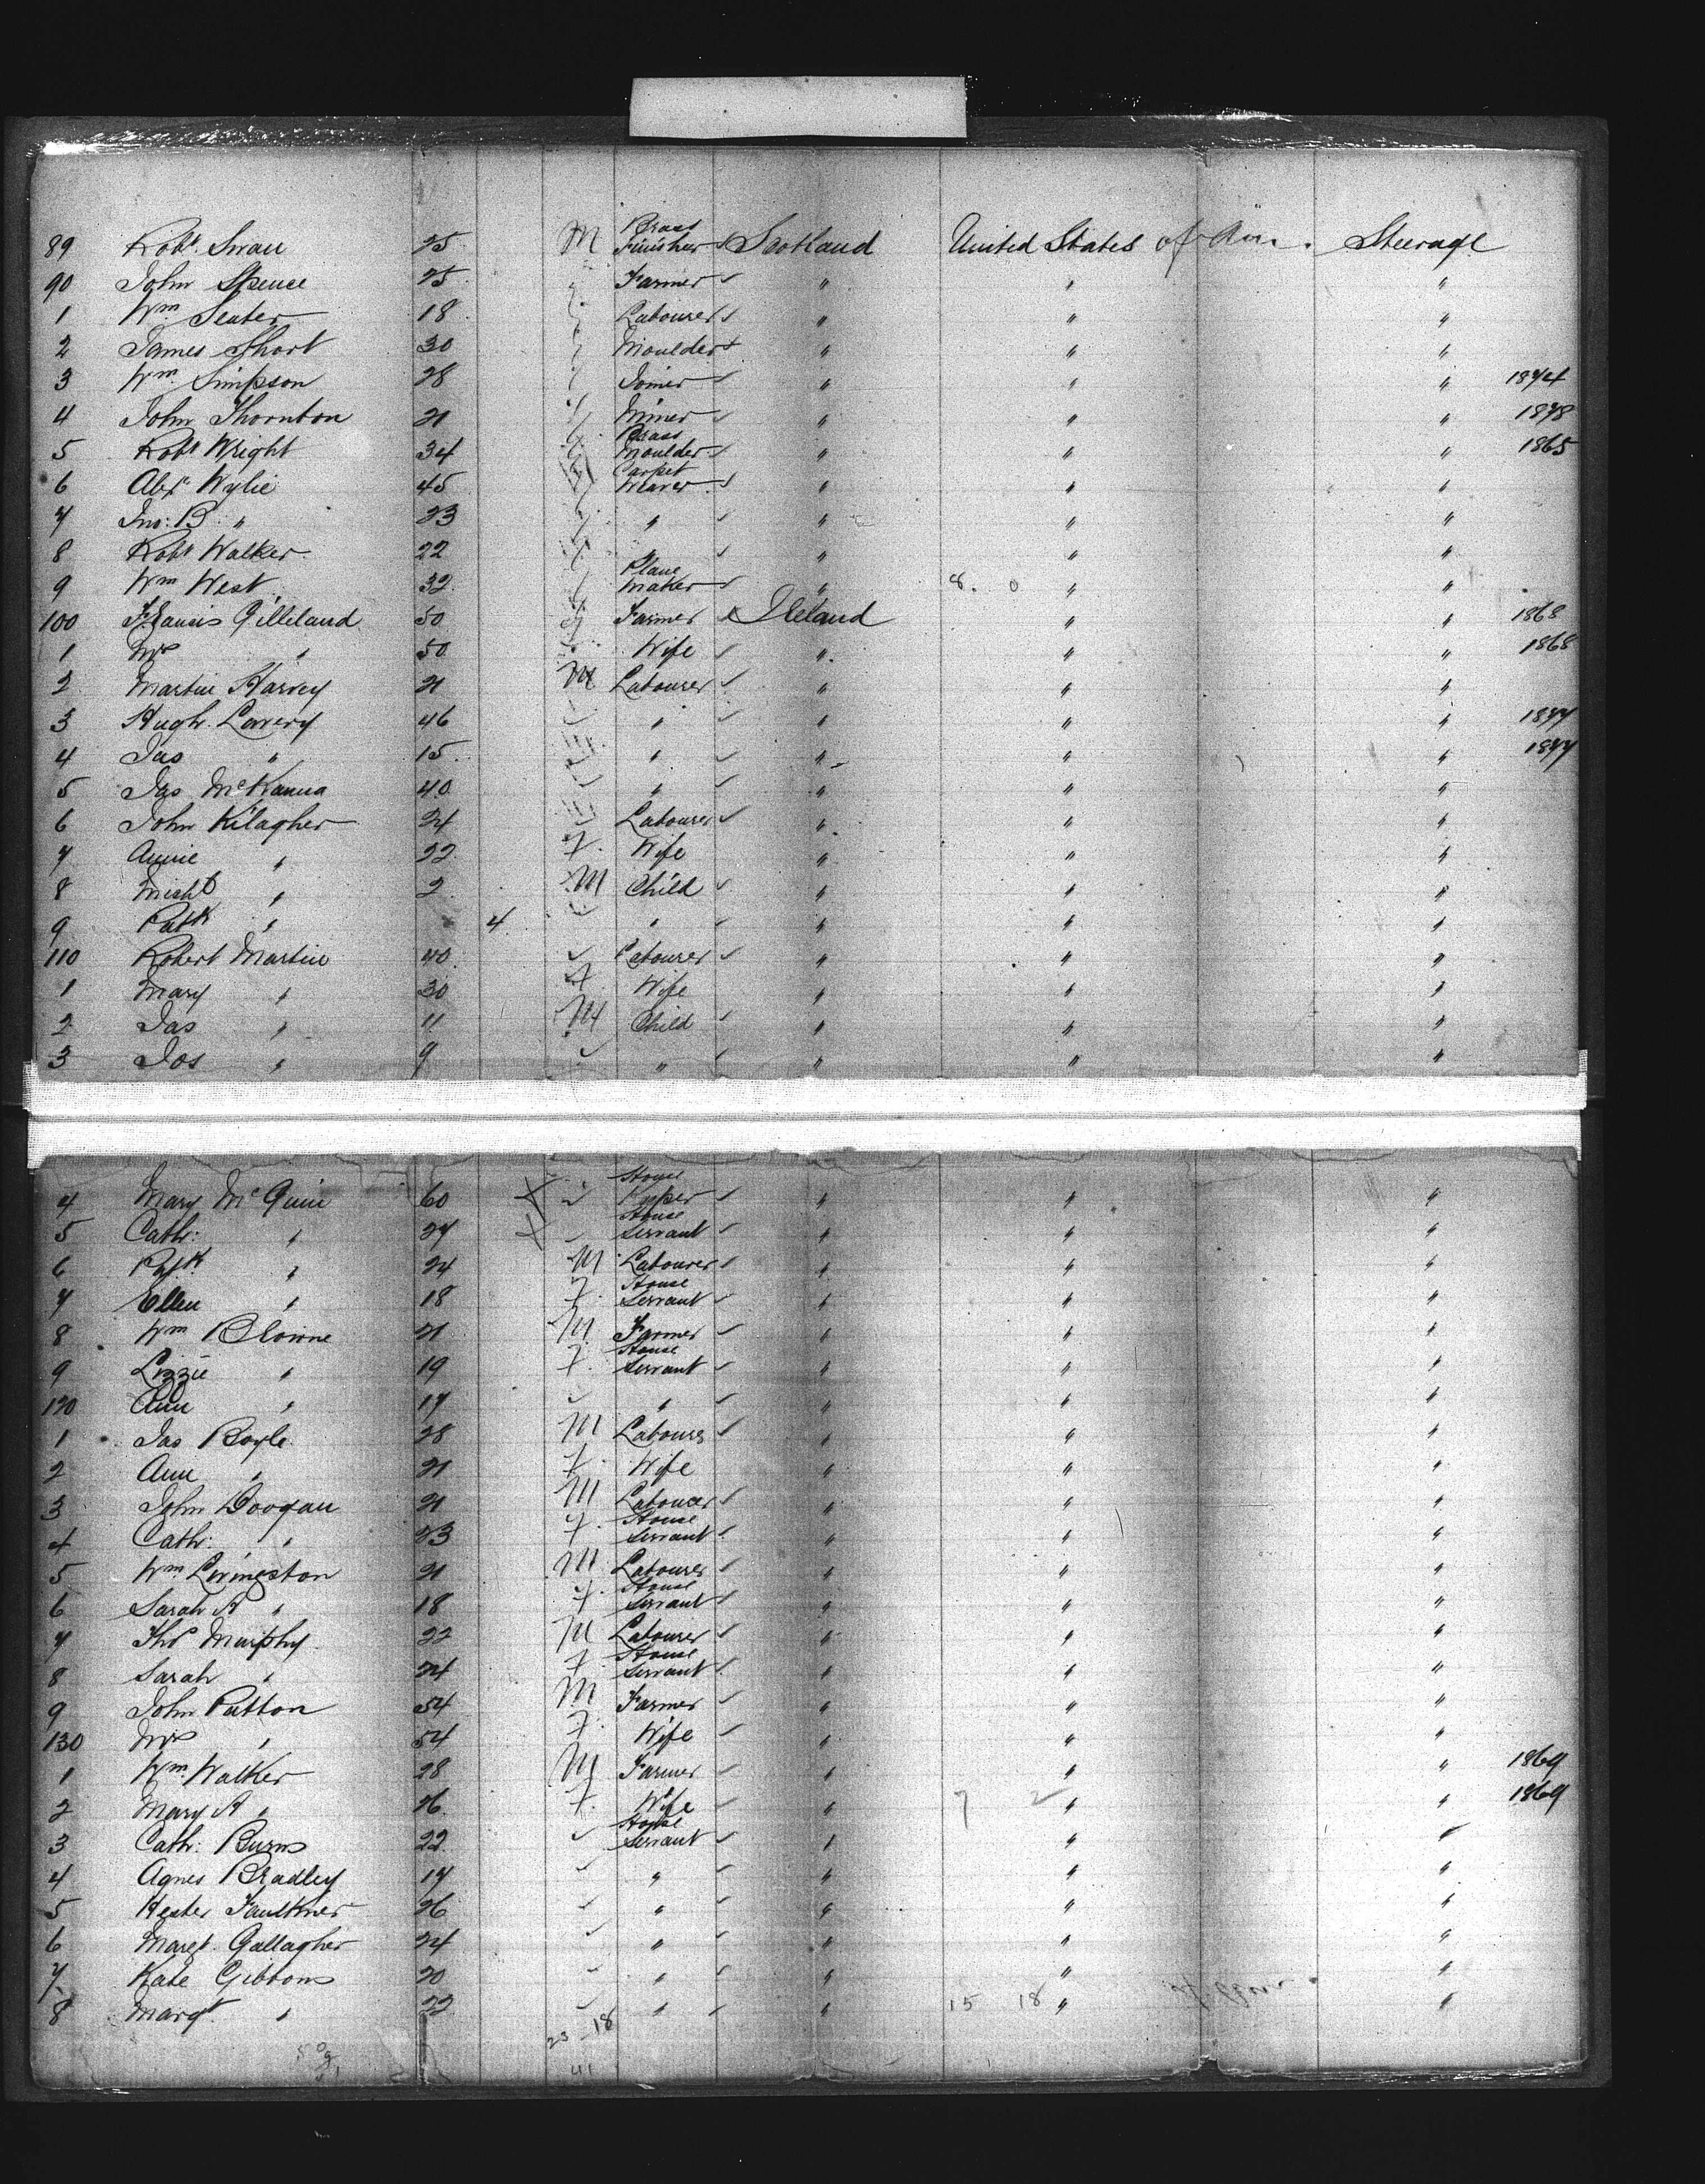 89 Robt. Swan 25 M Brass Finisher Scotland United States of Am. Steerage
90 John Spence 25 Farmer " " "
1 Wm. Seater 18 Labourer " " "
2 James Short 30 Moulder " " "
3 Wm. Simpson 28 Joiner " " " 1874
4 John Thornton 21 Miner " " " 1878
5 Robt Wright 34 Brass Moulder " " " 1865
6 Alexr Wylie 45 Carpet Weaver " " "
7 Jno: B. " 23 " " " "
8 Robt Walker 22 " " " "
9 Wm West 32 Plane Maker " 8. 0 " "
100 Francis Gilleland 50 Farmer Ireland " " 1868
1 Mrs " 50 Wife " " " 1868
2 Martin Harvey 21 M Labourer " " "
3 Hugh Lavery 46 " " " " 1877
4 Jas " 15 " " " " 1877
5 Jas McKanna 40 " " " "
6 John Kilagher 24 Labourer " " "
7 Annie " 22 F. Wife " " "
8 Michl " 2 M Child " " "
9 Patk " 4 " " " "
110 Robert Martin 40 Labourer " " "
1 Mary " 30 F Wife " " "
2 Jas " 11 M Child " " "
3 Jos " 9 " " " "
4 Mary McGuire 60 House Keeper " " "
5 Cath: " 27 House Servant " " "
6 Patk " 24 M Labourer " " "
7 Ellen " 18 F. House Servant " " "
8 Wm Browne 21 M Farmer " " "
9 Lizzie " 19 F. House Servant " " "
120 Ann " 17 " " " "
1 Jas Boyle 28 M Labourer " " "
2 Ann " 21 F. Wife " " "
3 John Doogan 21 M Labourer " " "
4 Cath: " 23 F. House Servant " " "
5 Wm Livingston 21 M Labourer " " "
6 Sarah A " 18 F. House Servant " " "
7 Thos Murphy 22 M Labourer " " "
8 Sarah " 24 F House Servant " " "
9 John Patton 54 M Farmer " " "
130 Mrs " 54 F. Wife " " "
1 Wm. Walker 28 M Farmer " " " 1869
2 Mary A " 26 F. Wife " 7 2 " " 1869
3 Cath: Burns 22 House Servant " " "
4 Agnes Bradley 17 " " " "
5 Hester Faulkner 26 " " " "
6 Margt. Gallagher 24 " " " "
7 Kate Gibbons 20 " " " "
8 Margt " 22 " " 15 18 " "
23 18
41